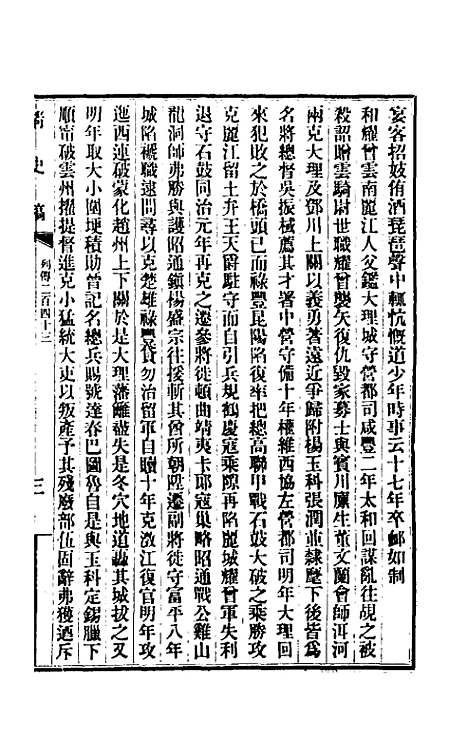 宴客招妓侑酒琵琶聲中輒慷慨道少年時事云十七年卒卹如制
和耀曾雲南麗江人父鑑大理城守營都司咸豐二年太和回謀亂往覘之被
殺詔贈雲騎尉世職耀曾襲矢復仇毀家募士與賓川廩生董文蘭會師洱河
兩克大理及鄧川上關以義勇著遠近爭歸附楊玉科張潤並隸麾下後皆爲
名將總督吳振棫薦其才署中營守備十年權維西協左營都司明年大理回
來犯敗之於橋頭已而祿豐昆陽陷復率把總高聯甲戰石鼓大破之乘勝攻
克麗江留土弁王天爵駐守而自引兵規鶴慶寇乘隙再陷麗城耀曾軍失利
退守石鼓同治元年再克之遷參將徙頓曲靖夷卡耶寇巢略昭通戰公雞山
龍洞師弗勝與護昭通鎮楊盛宗往援斬其酋所朝陞遷副將徙守富平八年
城陷褫職逮問尋以克楚雄祿豐貸勿治留軍自贖十年克澂江復官明年攻
迤西連破蒙化趙州上下關於是大理藩籬盡失是冬穴地道轟其城拔之又
明年取大小圍埂積勛曾記名總兵賜號達春巴圖魯自是與玉科定錫臘下
順甯破雲州擢提督進克小猛統大吏以叛產予其殘廢部伍固辭弗獲迺斥
清史稿
列傳二百四十三
三